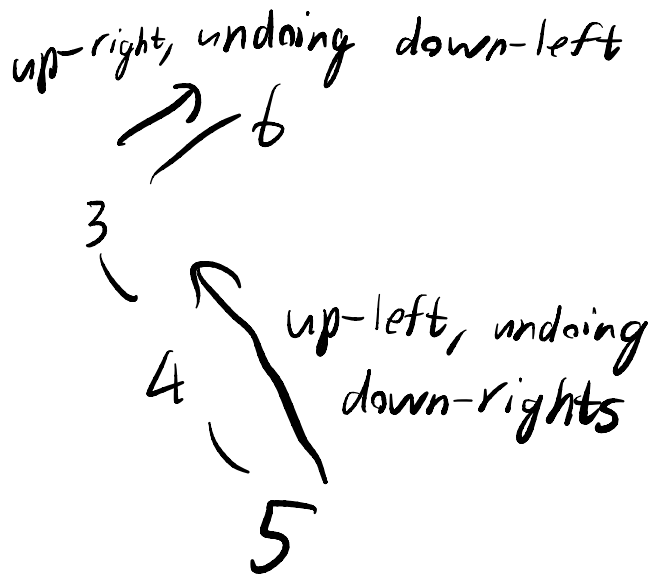 up-right, undoing down-left
6
3
up-left, undoing
4
down-rights
5